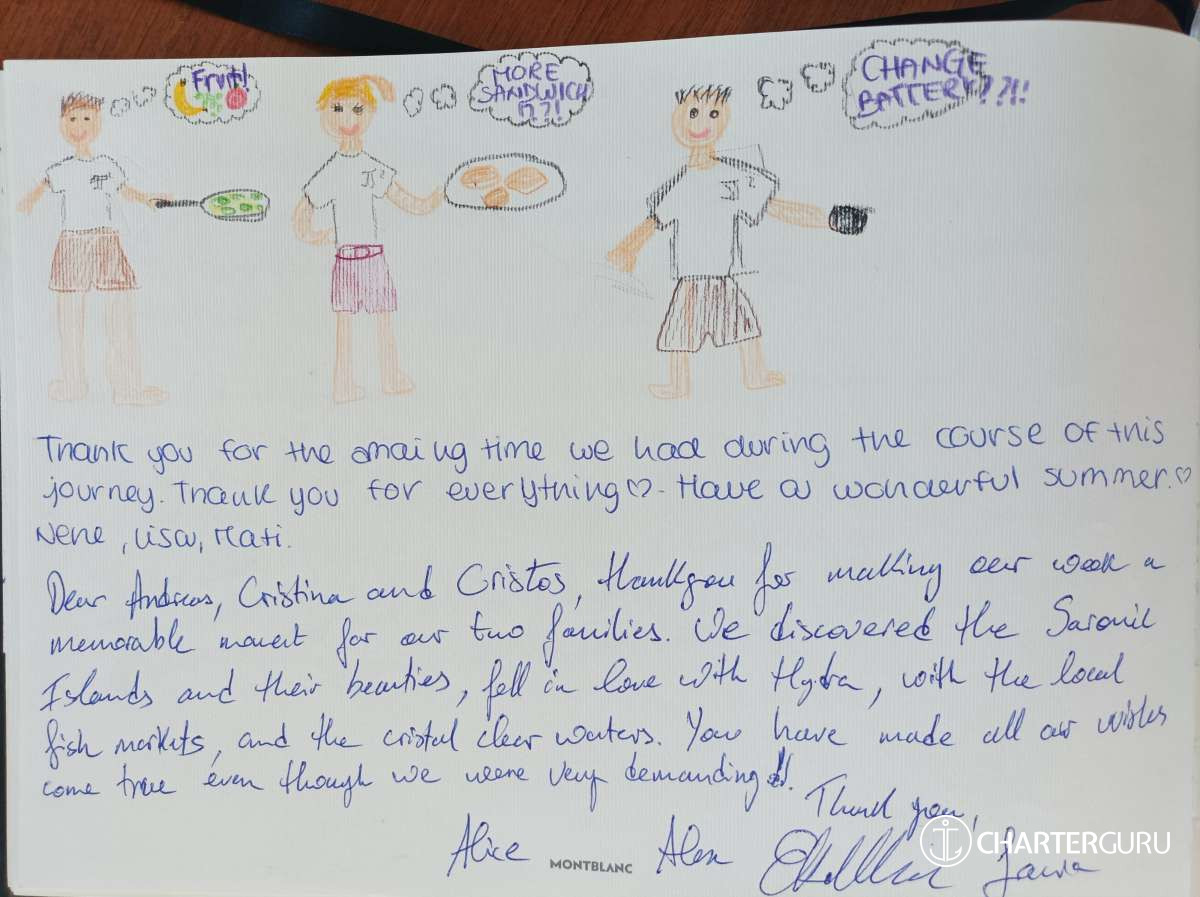 Fruit!
MORE
SANDWICH
?!?!
CHANGE
BATTERY??!!
JJ²
JJ²
Thank you for the amaing time we had during the course of this
journey. Thank you for everything♡. Have a wonderful summer.♡
Nene, Lisa, Mati.
Dear Andreas, Cristina and Cristos, thankyou for making our week a
memorable moment for our two families. We discovered the Saronic
Islands and their beauties, fell in love with Hydra, with the local
fish markets, and the cristal clear waters. You have made all our wishes
come true even though we were very demanding!!.
Thank you,
Alice Alex Laura
MONTBLANC
CHARTERGURU